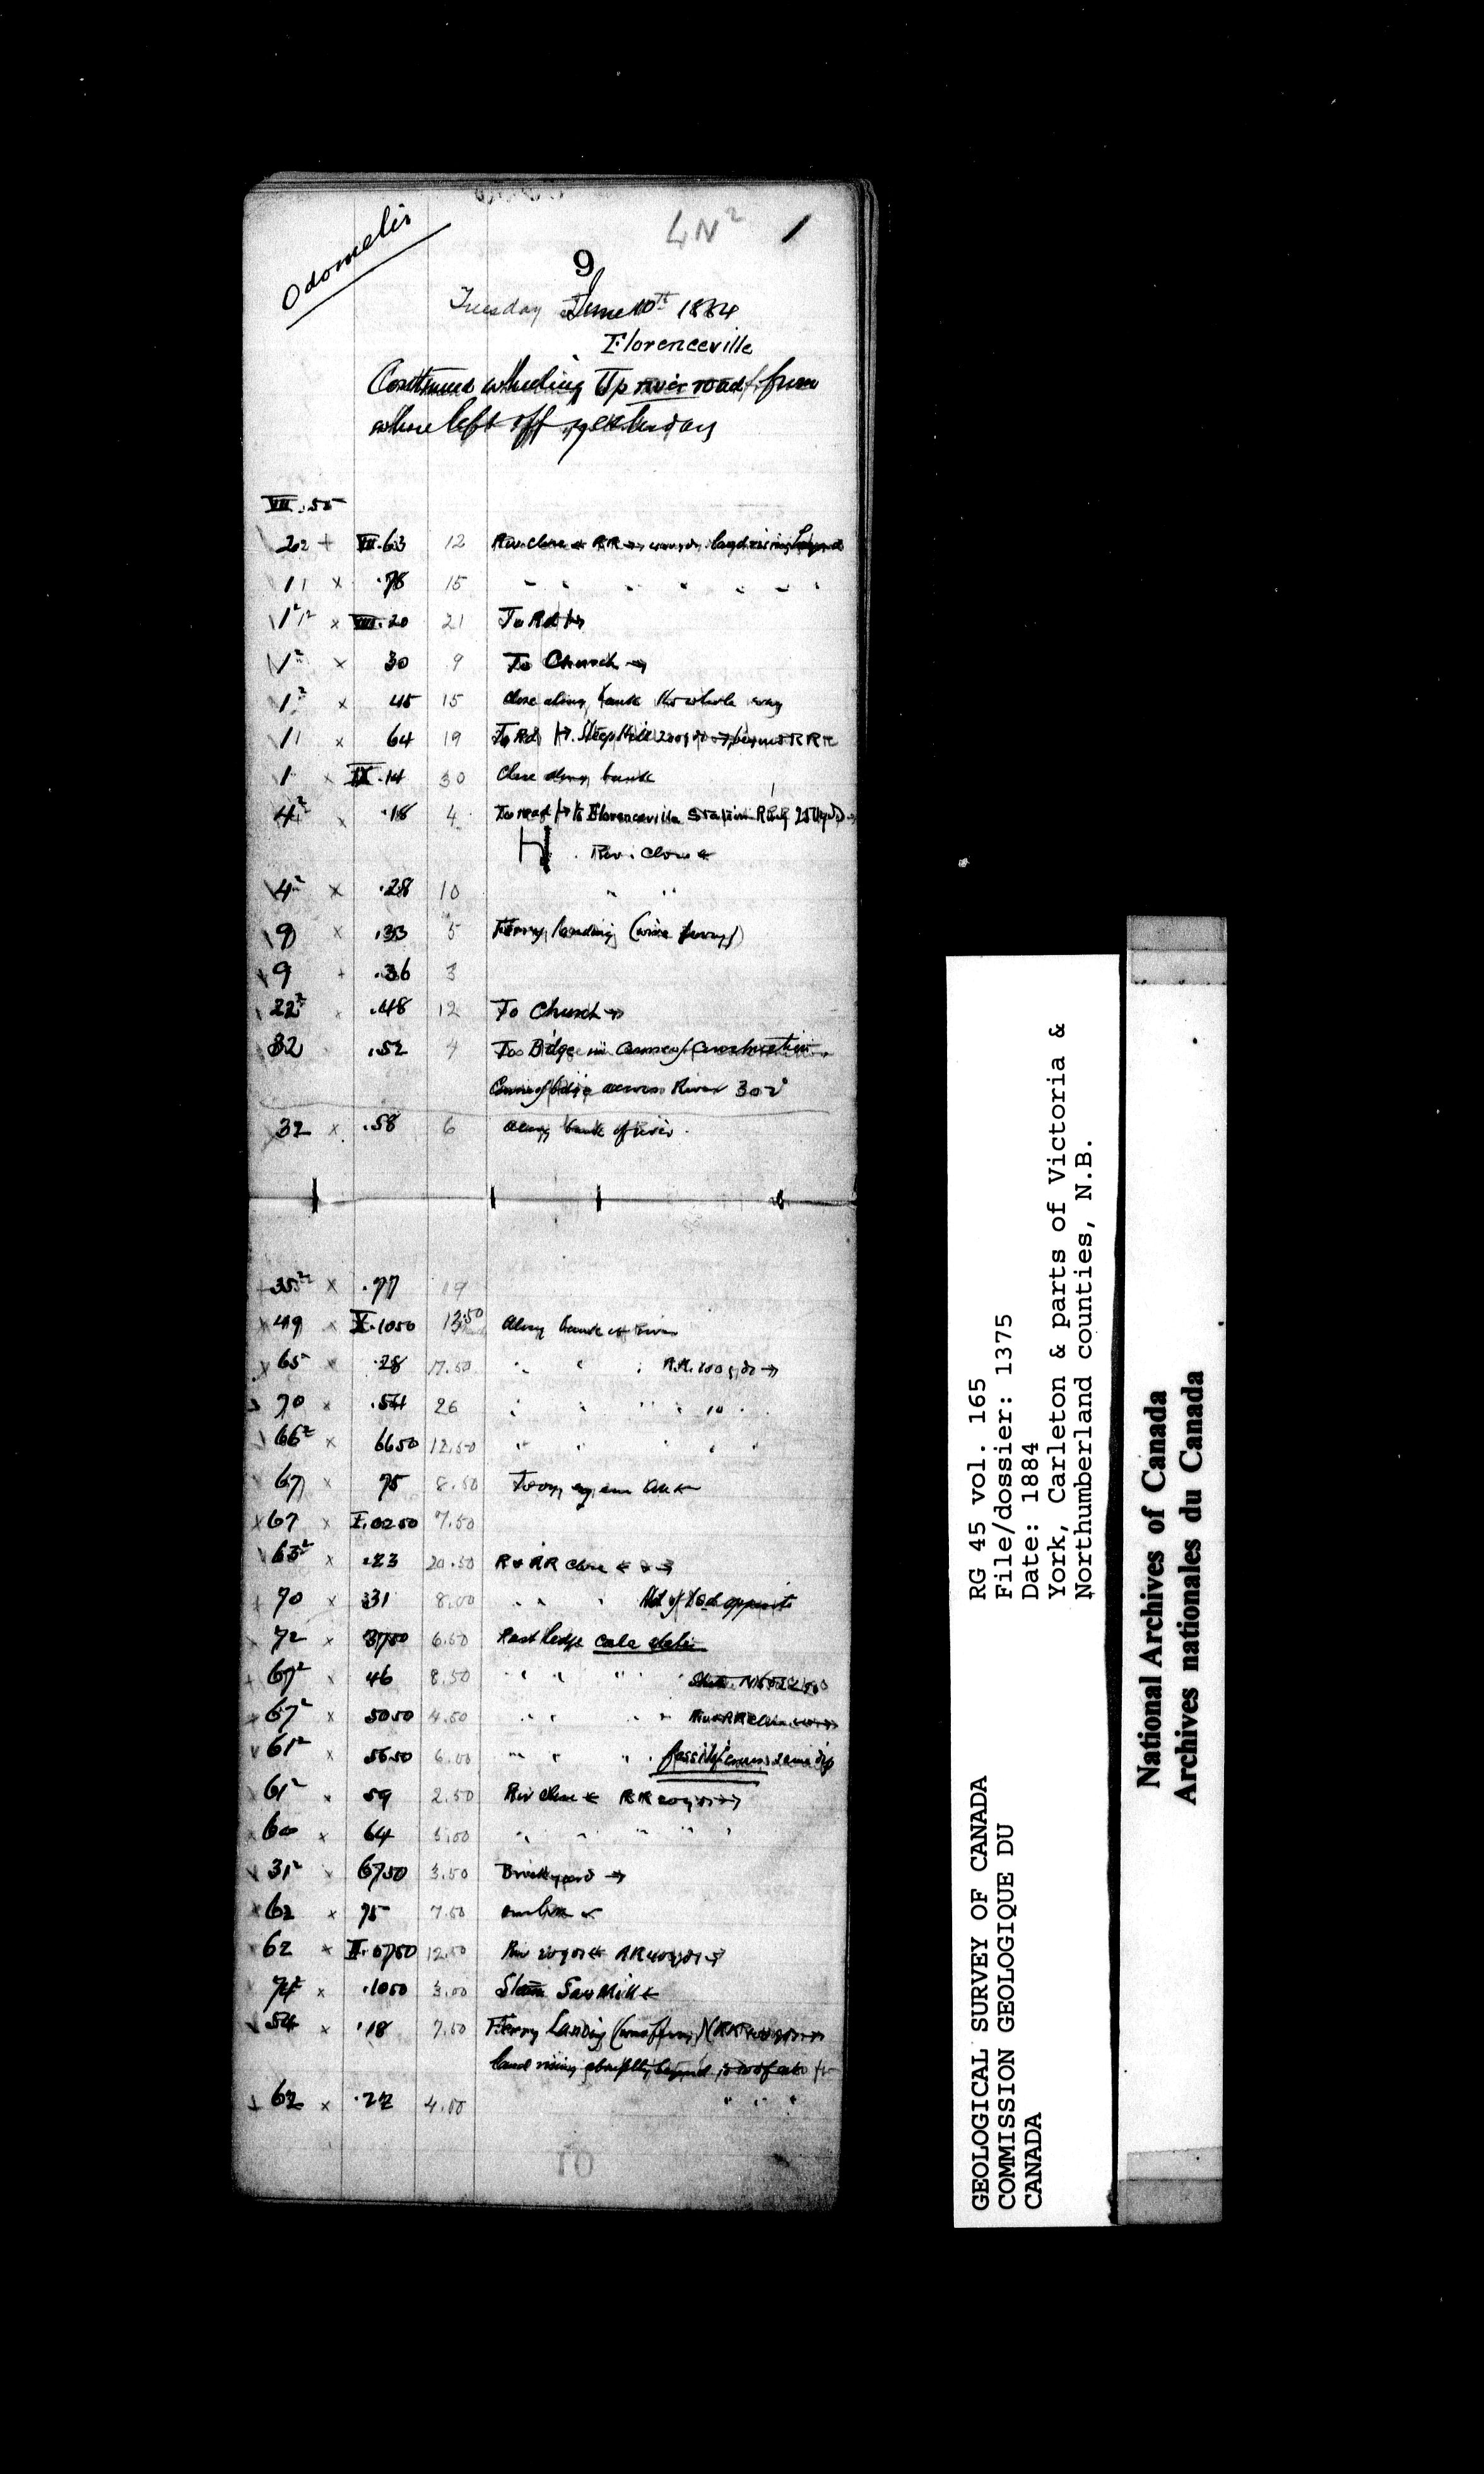 Odometer
4N² 1
9
Tuesday June 10th 1884
Florenceville
Continued wheeling Up river road from
where left off yesterday
VII .55
22 + VII.63 12 Riv. close ← RR → land rising beyond
11 x .78 15 " " " " " "
1² x VIII.20 21 To Rd |→
1² x 30 9 To Church →
1² x 45 15 close along bank the whole way
11 x 64 19 To Rd |→ Steep Hill 200 yds → beyond RR
1 x IX.14 30 Close along bank
4² x .18 4 To road |→ to Florenceville Station RR 250 yds →
H Riv. Close ←
4² x .28 10 " "
9 x .33 5 Ferry landing (wire ferry)
9 + .36 3
22² x .48 12 To Church →
32 .52 4 To Bridge in course of construction
Course of bridge across River 302°
32 x .58 6 along bank of river
35² x .77 19
49 x X.1050 13.50 Along bank of river
65 x .28 17.50 " " " RR. 200 yds →
70 x .54 26 " " " " "
66² x 6650 12.50 " " " "
67 x 75 8.50
67 x I.0250 7.50
63² x .23 20.50 R & RR close ← & →
70 x 31 8.00 " " " opposite
72 x 3750 6.50 Past ledge calc slate
67² x 46 8.50 " " "
67² x 5050 4.50 " " " "
61² x 5650 6.00 " " " fossiliferous same dip
61² x 59 2.50 Riv close ← RR 20 yds →
60 x 64 5.00 " " " " "
31² x 6750 3.50 Brickyard →
62 x 75 7.50
62 x II.0750 12.50 Riv 20 yds ← RR 40 yds →
74² x .1050 3.00 Steam Saw Mill ←
54 x .18 7.50 Ferry Landing (wire ferry) RR →
land rising abruptly beyond
62 x .22 4.00 " " "
10
GEOLOGICAL SURVEY OF CANADA
COMMISSION GEOLOGIQUE DU
CANADA
RG 45 vol. 165
File/dossier: 1375
Date: 1884
York, Carleton & parts of Victoria &
Northumberland counties, N.B.
National Archives of Canada
Archives nationales du Canada